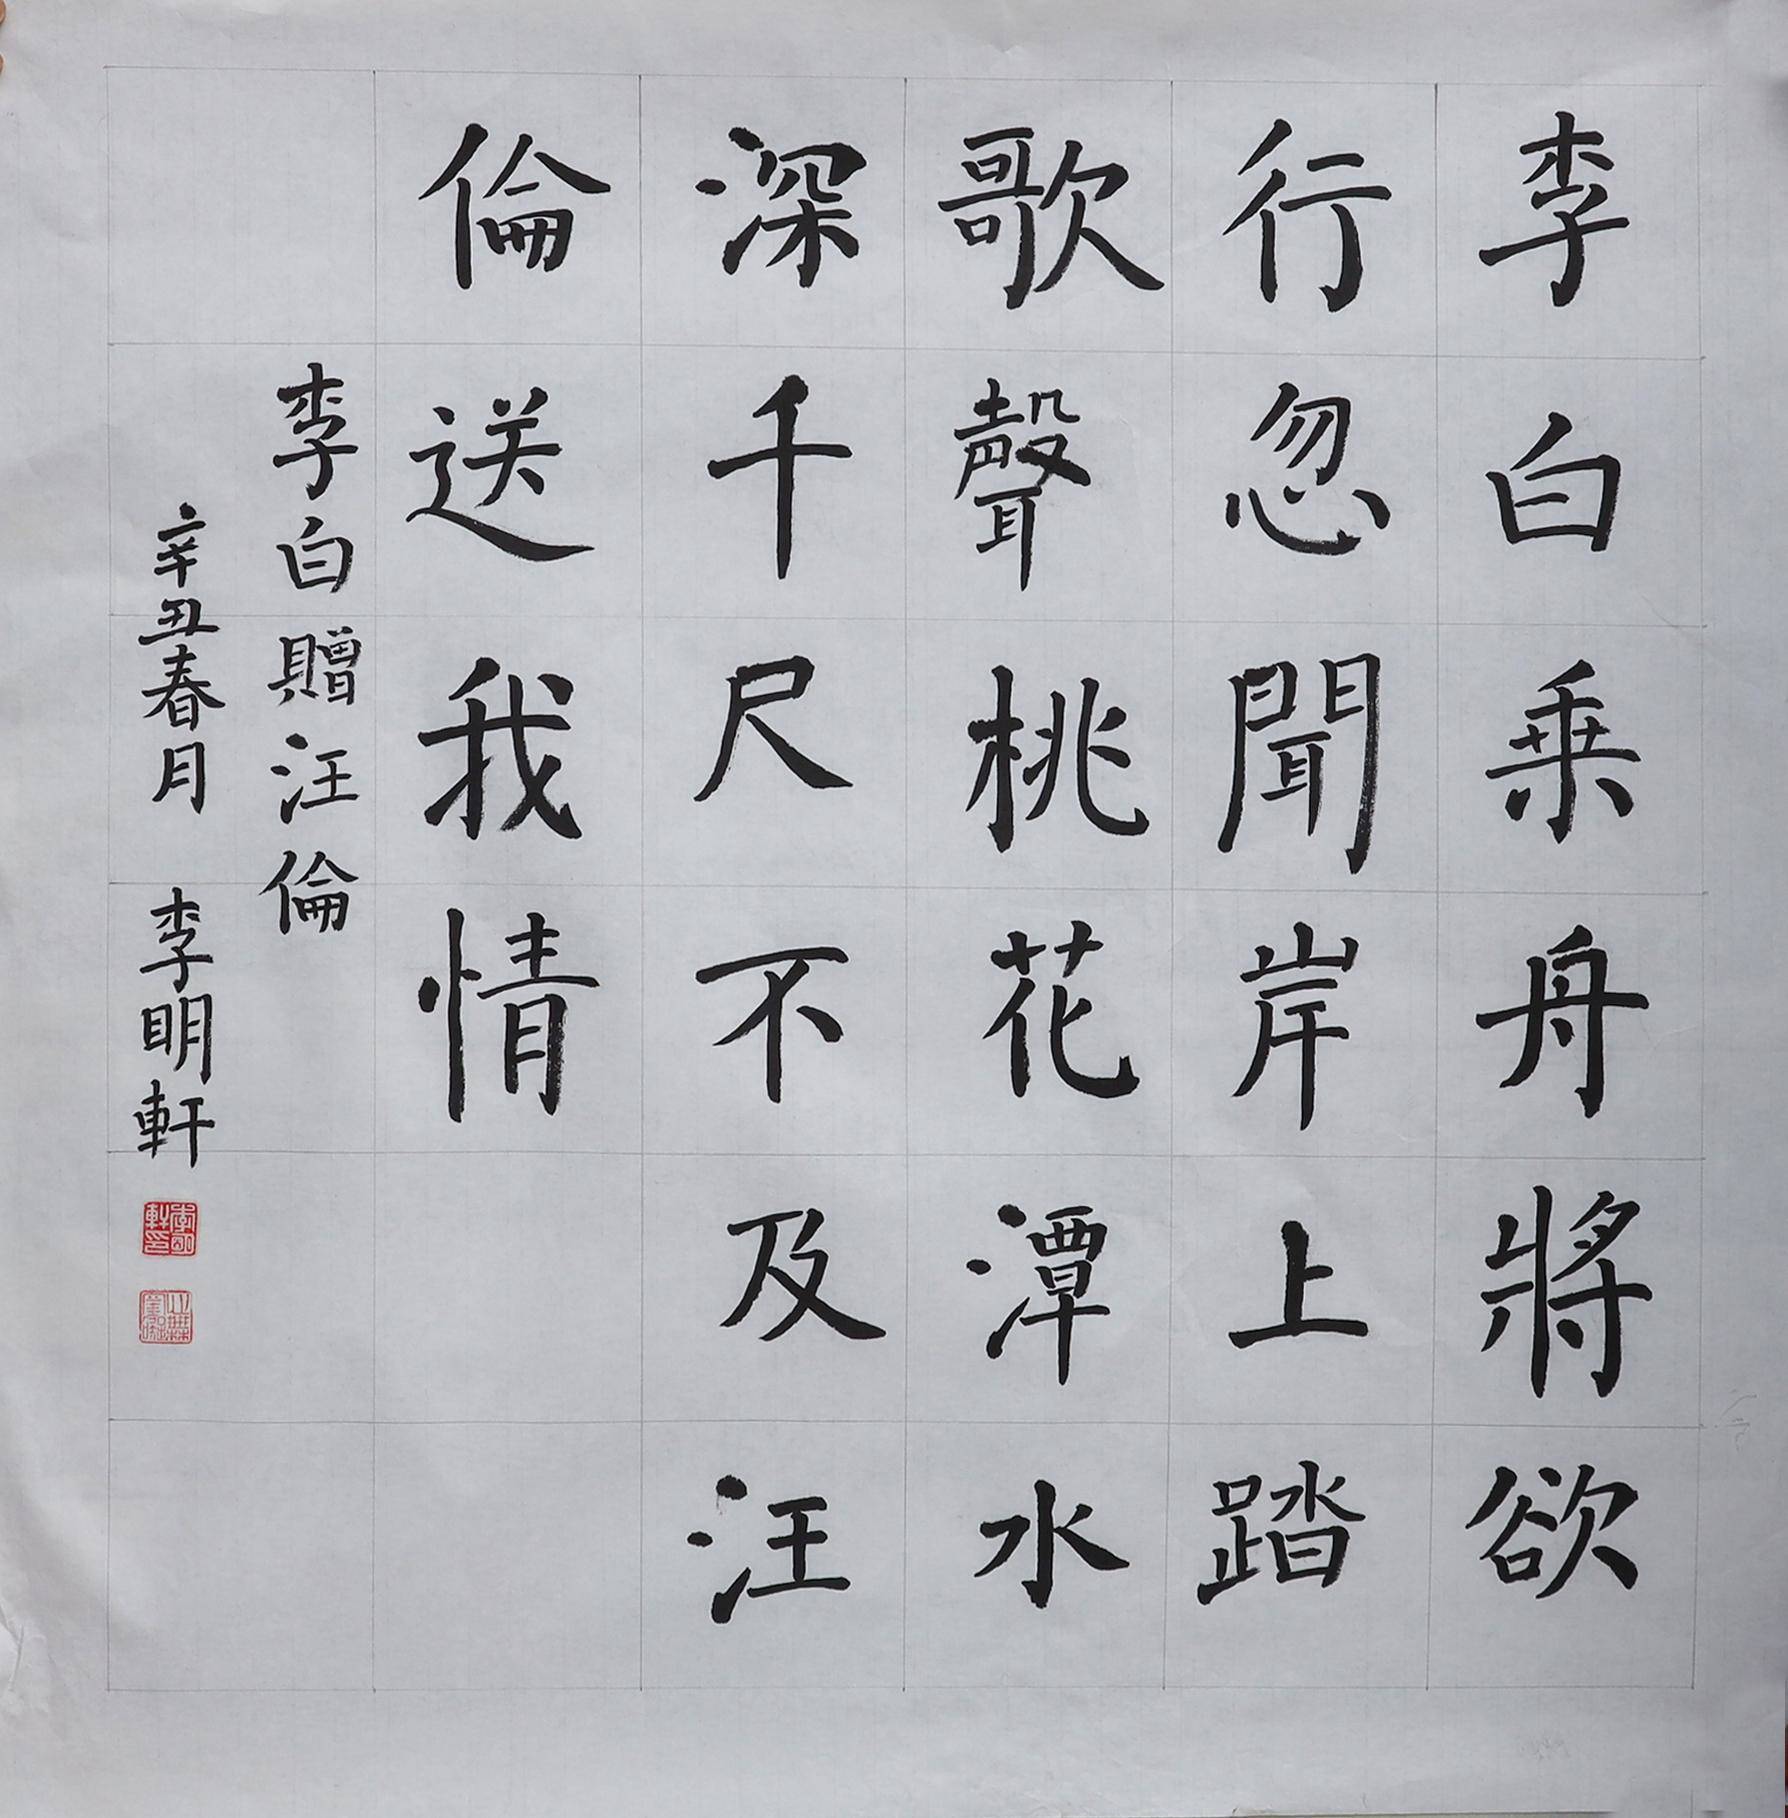 李白乗舟將欲
行忽聞岸上踏
歌聲桃花潭水
深千尺不及汪
倫送我情
李白贈汪倫
辛丑春月 李明軒
李明軒印